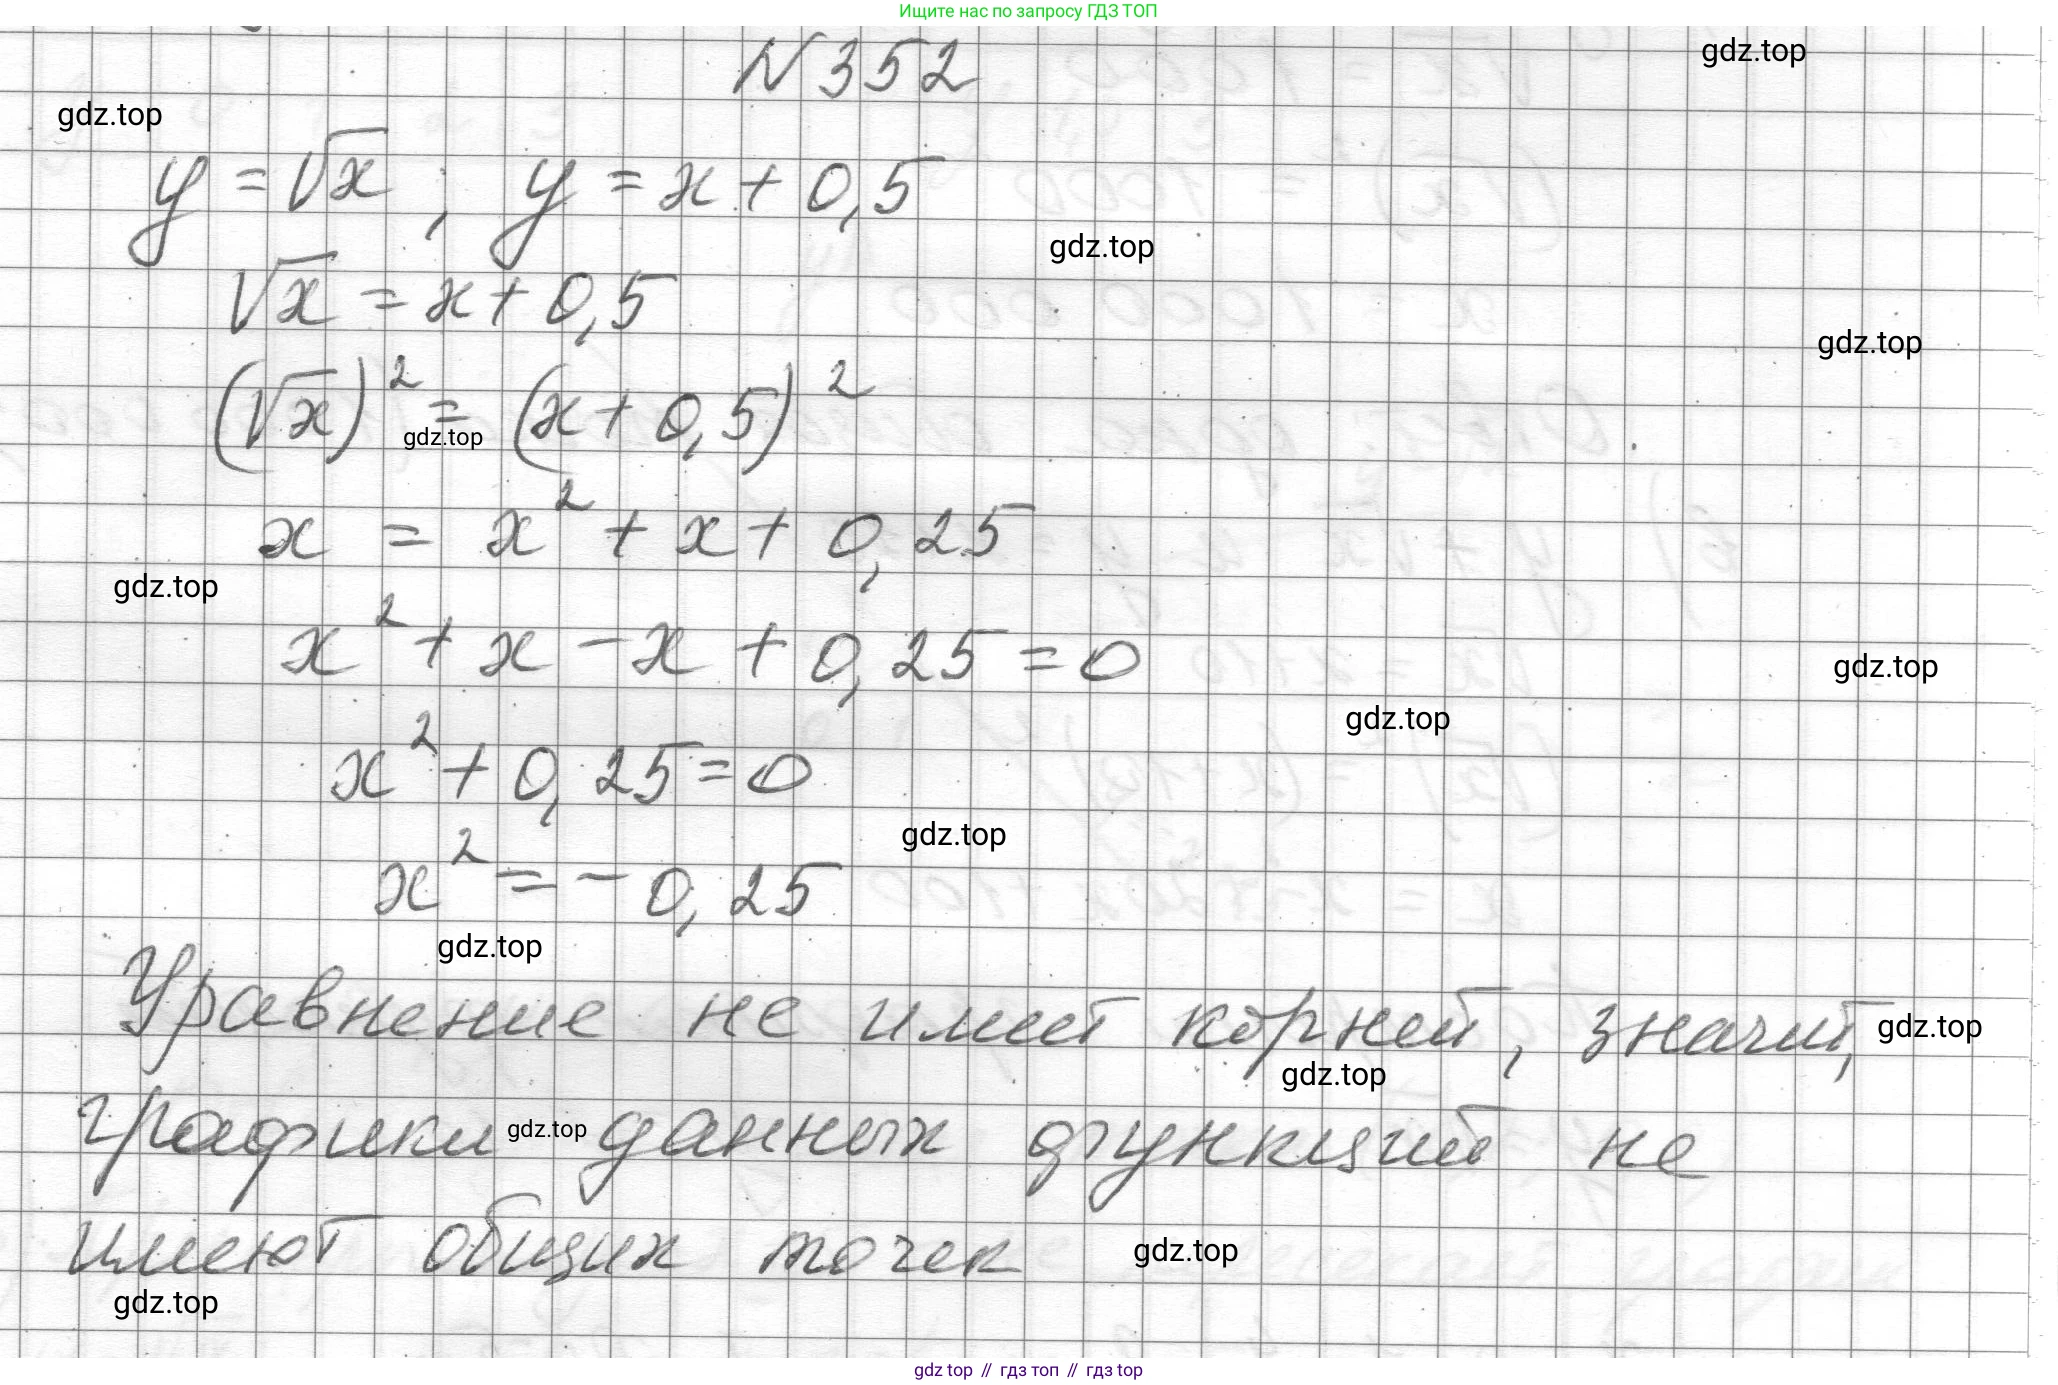 Ищите нас по запросу ГДЗ ТОП
N 352
gdz.top
gdz.top
y = √x ; y = x + 0,5
gdz.top
√x = x + 0,5
gdz.top
(√x)² = (x + 0,5)²
gdz.top
x = x² + x + 0,25
gdz.top
x² + x − x + 0,25 = 0
gdz.top
gdz.top
x² + 0,25 = 0
gdz.top
x² = − 0,25
gdz.top
Уравнение не имеет корней, значит,
gdz.top
gdz.top
графики данных функций не
gdz.top
имеют общих точек
gdz.top
gdz.top
gdz top // гдз топ // гдз top